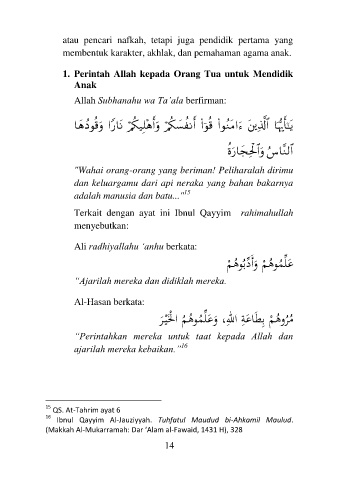 atau pencari nafkah, tetapi juga pendidik pertama yang
membentuk karakter, akhlak, dan pemahaman agama anak.
1. Perintah Allah kepada Orang Tua untuk Mendidik
Anak
Allah Subhanahu wa Ta’ala berfirman:
يَـٰٓأَيُّهَا ٱلَّذِينَ ءَامَنُوا۟ قُوٓا۟ أَنفُسَكُمْ وَأَهْلِيكُمْ نَارًا وَقُودُهَا
ٱلنَّاسُ وَٱلْحِجَارَةُ
"Wahai orang-orang yang beriman! Peliharalah dirimu
dan keluargamu dari api neraka yang bahan bakarnya
adalah manusia dan batu..."15
Terkait dengan ayat ini Ibnul Qayyim rahimahullah
menyebutkan:
Ali radhiyallahu ‘anhu berkata:
عَلِّمُوهُمْ وَأَدِّبُوهُمْ
“Ajarilah mereka dan didiklah mereka.
Al-Hasan berkata:
مُرُوهُمْ بِطَاعَةِ اللهِ، وَعَلِّمُوهُمُ الْخَيْرَ
“Perintahkan mereka untuk taat kepada Allah dan
ajarilah mereka kebaikan.”16
15 QS. At-Tahrim ayat 6
16 Ibnul Qayyim Al-Jauziyyah. Tuhfatul Maudud bi-Ahkamil Maulud.
(Makkah Al-Mukarramah: Dar ‘Alam al-Fawaid, 1431 H), 328
14